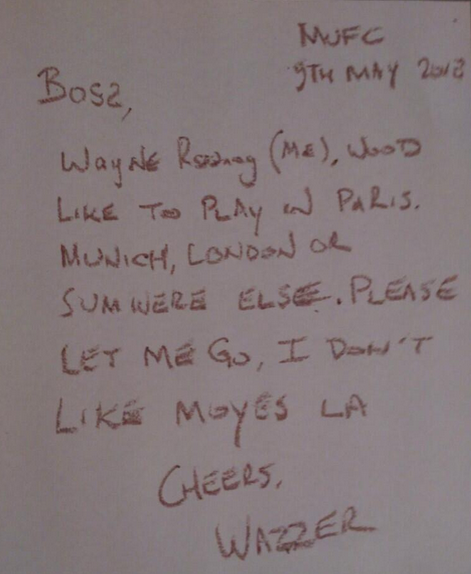 MUFC
9TH MAY 2012
Bosz,
Wayne Rooney (Me), WOOD
LIKE TO PLAY IN PARIS.
MUNICH, LONDON OR
SUMWERE ELSE. PLEASE
LET ME GO, I DON'T
LIKE MOYES LA
CHEERS,
WAZZER